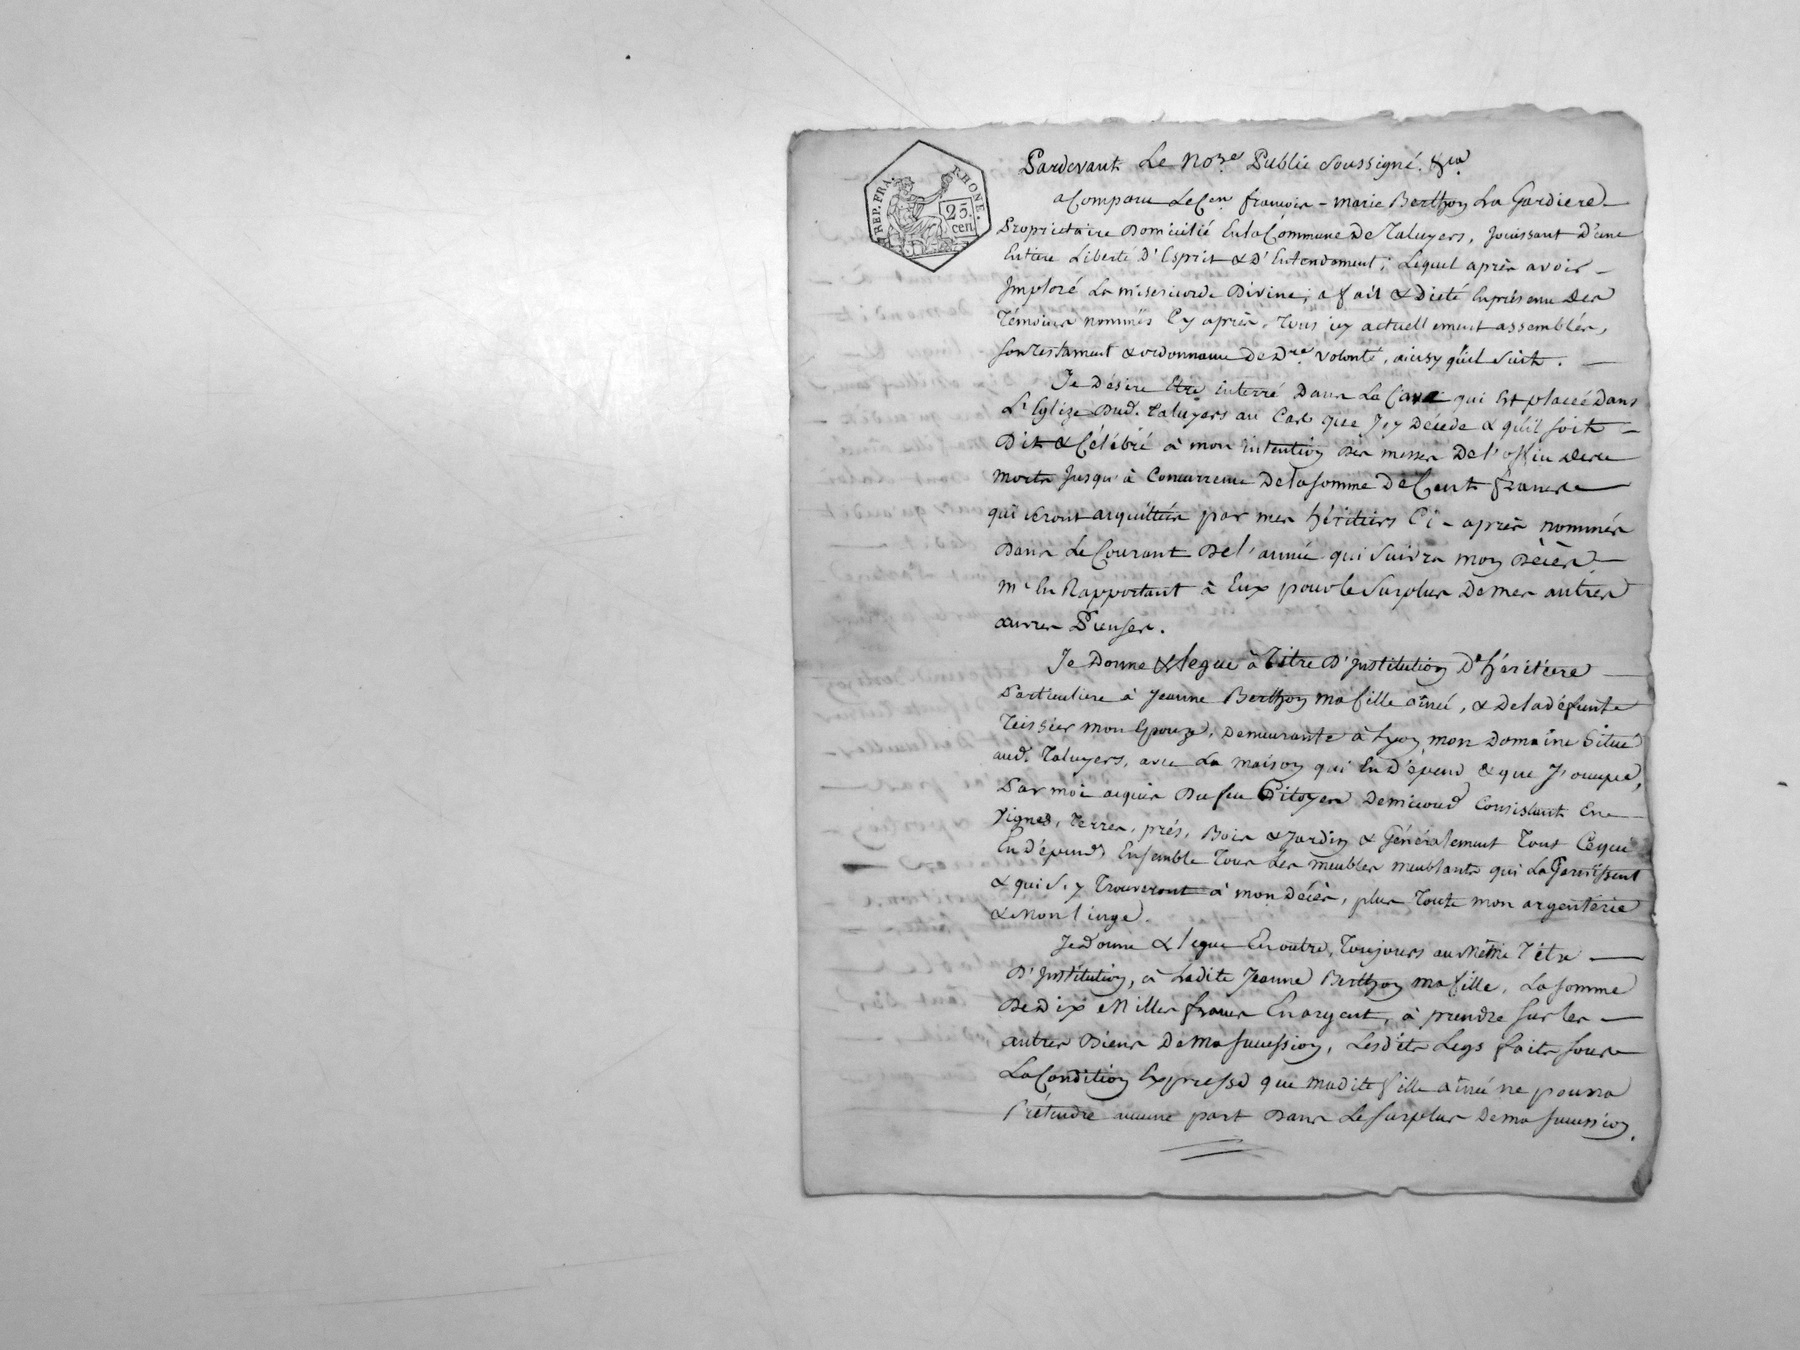 REP. FRA. RHONE.
25. cen.
Pardevant Le No.re Public Soussigné. &ca.
a Comparu Le Cen. françois-marie Berthon La Gardiere
Proprietaire Domicilié En la Commune De Taluyers, Jouissant D'une
Entiere Liberté D'Esprit & D'Entendement; Lequel après avoir
Imploré La misericorde Divine; a fait & Dicté En présence Des
Témoins nommés Cy après, Tous icy actuellement assemblés,
son Testament & ordonnance de D.re volonté, ainsy qu'il suit.
Je Désire Etre enterré Dans La Cave qui Est placée Dans
L'Eglize Dud. Taluyers au Cas que J'y Décede & qu'il soit
Dit & Célébré à mon intention Des messes De l'office Des
morts Jusqu'à Concurrence De la somme De Cent francs
qui seront acquittés par mes héritiers Ci-après nommés
Dans Le Courant De l'année qui suivra mon Décès
m'En Rapportant à Eux pour le Surplus De mes autres
œuvres Pieuses.
Je Donne & legue à Titre D'Institution D'héritiere
Particuliere à Jeanne Berthon ma fille aînée, & De la défunte
Teissier mon Epouze, Demeurante à Lyon, mon Domaine Situé
aud. Taluyers, avec La maison qui En Dépend & que J'occupe,
Par moi acquis Du feu Citoyen Demicoud Consistant En
Vignes, Terres, prés, Bois & Jardin & Généralement Tout Ce qui
En dépend, Ensemble Tous Les meubles meublants qui La Garnissent
& qui S'y Trouveront à mon Décès, plus Toute mon argenterie
& Mon linge.
Je donne & legue En outre, Toujours au Même Titre
D'Institution, à Ladite Jeanne Berthon ma fille, La somme
De Dix Milles francs En argent, à prendre sur les
autres Biens De Ma Succession, Lesdits Legs faits sous
La Condition Expresse que madite fille aînée ne pourra
Prétendre aucune part Dans Le surplus De ma succession.